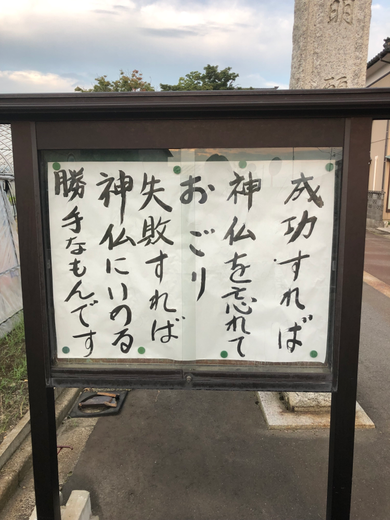 成功すれば
神仏を忘れて
おごり
失敗すれば
神仏にいのる
勝手なもんです
明